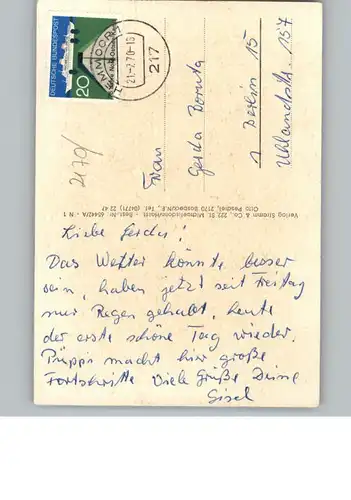 DEUTSCHE BUNDESPOST
20
HEMMOOR
21.-7.70-15
217
2170/
Frau
Gerda
1 Berlin 15
Uhlandstr. 157
Verlag Stramm & Co., 222 St. Michaelisdonn/Holst. - Best.-Nr. 65442/A - N 1
Otto Peschel, 2170 Basbeck/N.E., Tel. (04771) 22 47
Liebe Gerda!
Das Wetter könnte besser
sein, haben jetzt seit Freitag
nur Regen gehabt, heute
der erste schöne Tag wieder.
Püppi macht hier große
Fortschritte Viele Grüße Deine
Gisel